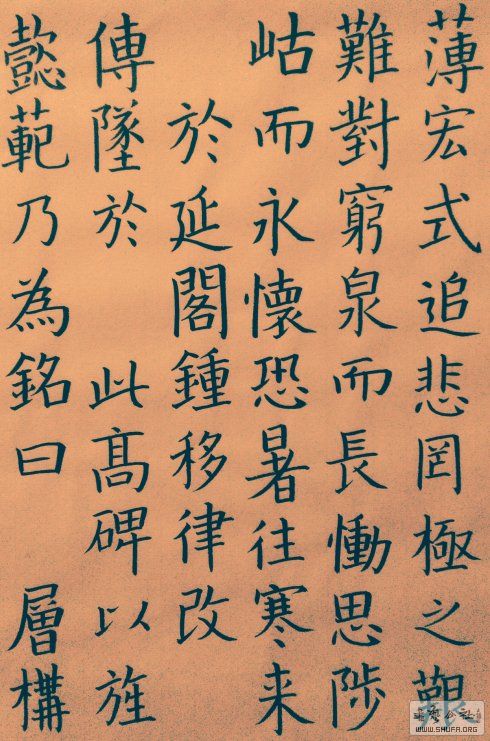 薄宏式追悲罔極之
難對窮泉而長慟思陟
岵而永懷恐暑往寒来
於延閣鍾移律改
傳墜於 此髙碑以旌
懿範乃為銘曰 層構
WWW.SHUFA.ORG